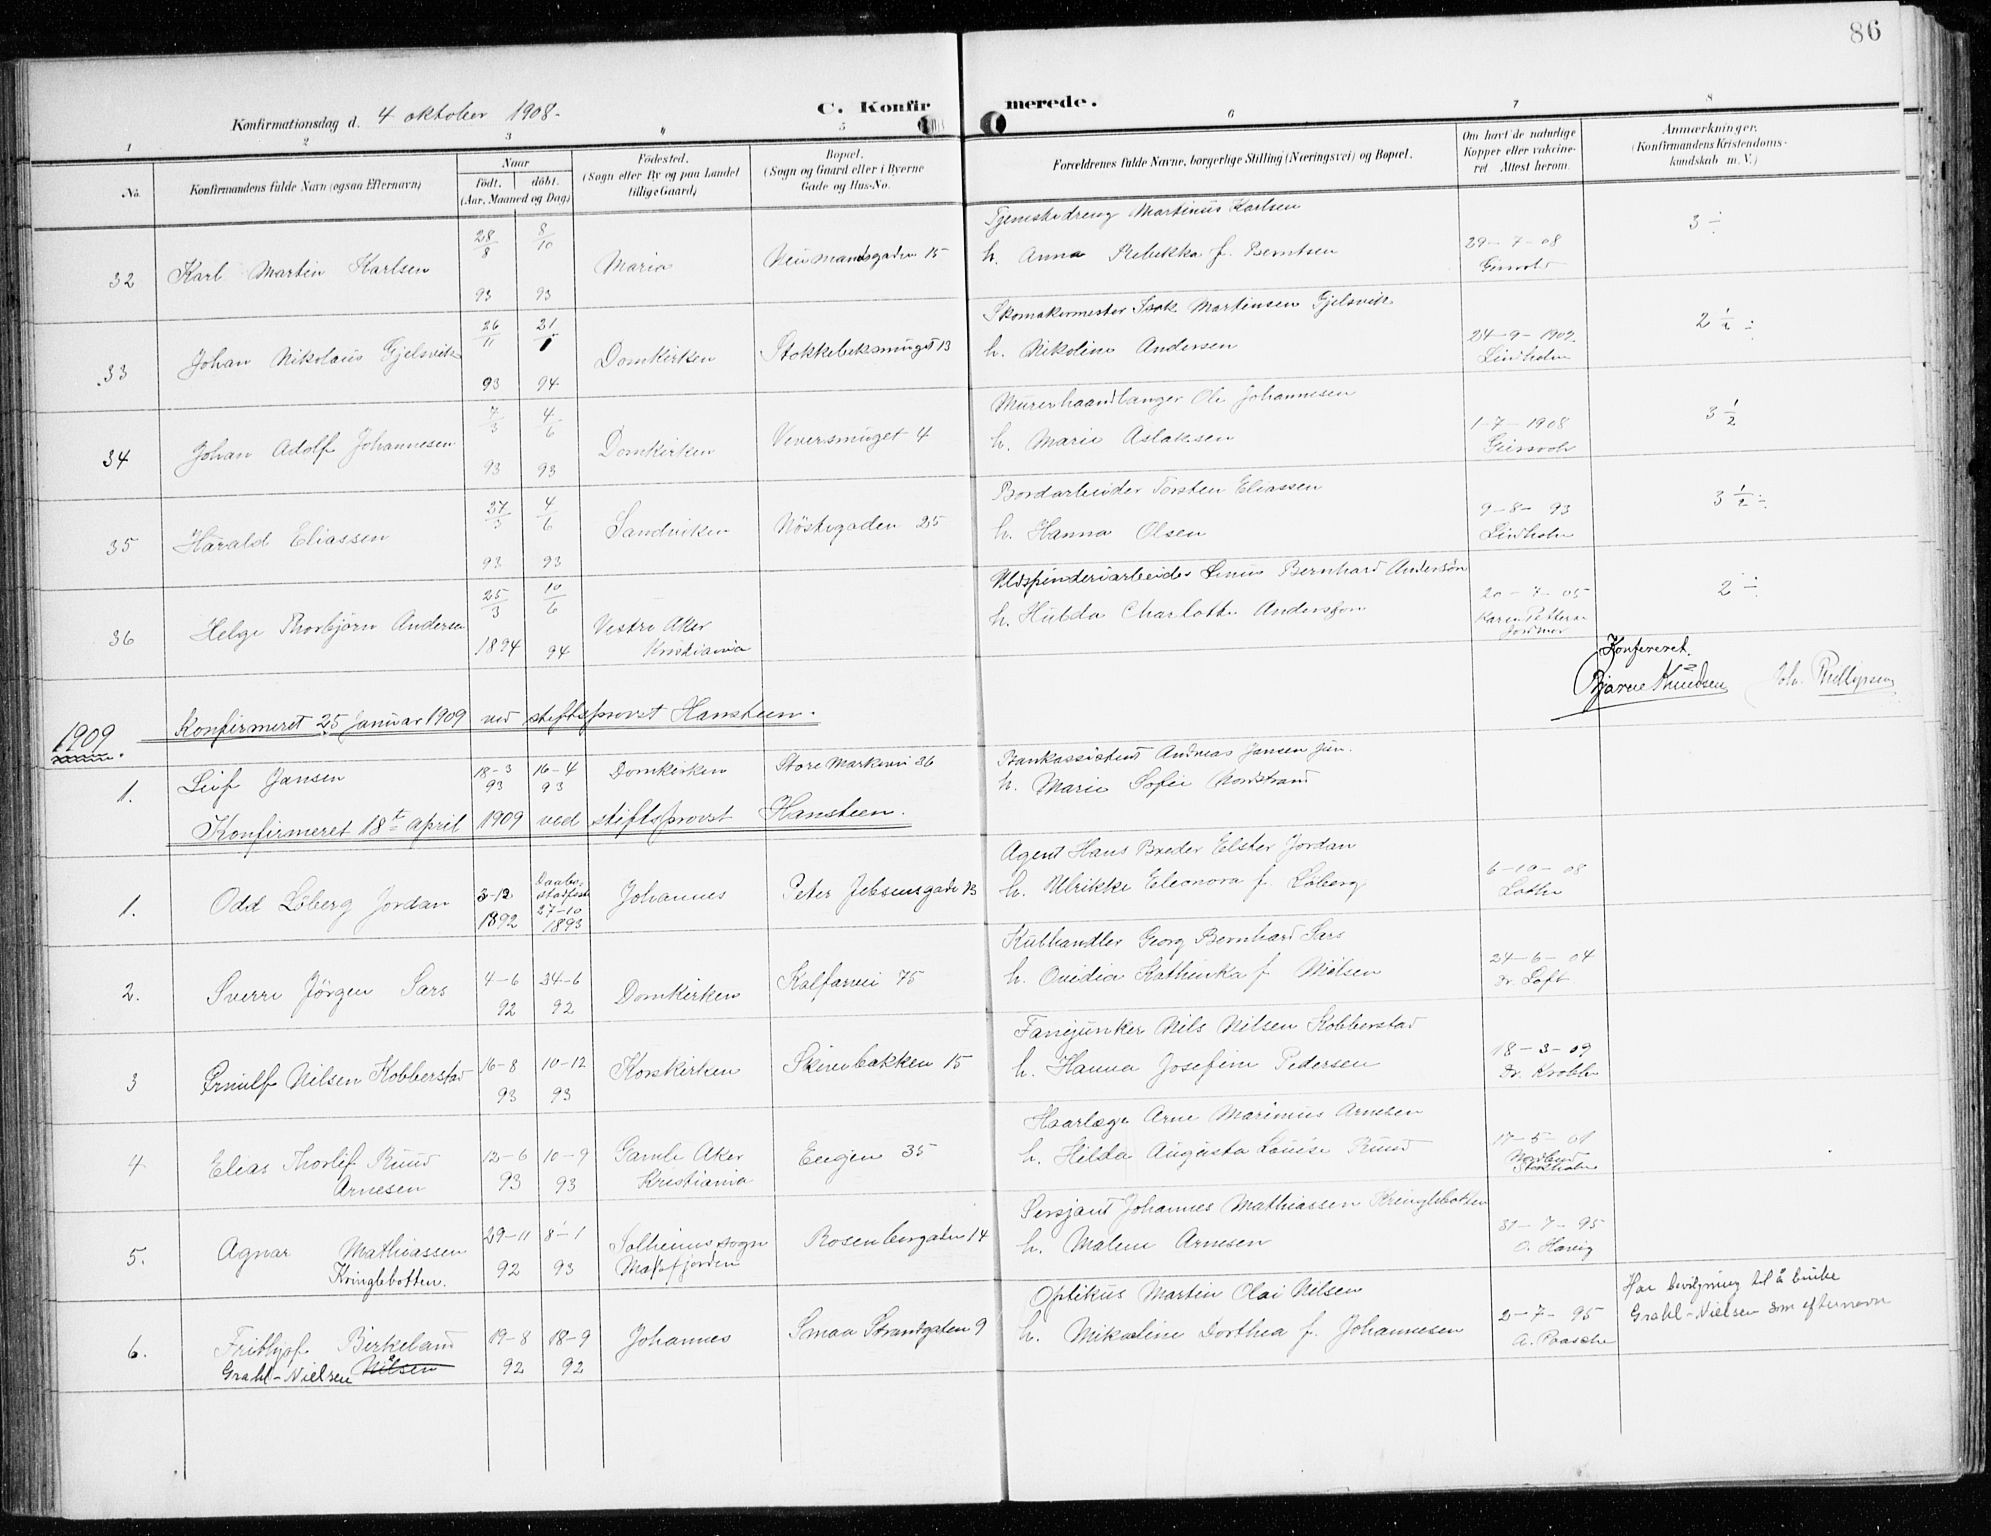 86
Konfirmationsdag d. 4 oktober 1908.
C. Konfirmerede.
1 2 3 4 5 6 7 8
No. Konfirmandens fulde Navn (ogsaa Efternavn) Naar født. døbt. (Aar, Maaned og Dag) Fødested. (Sogn eller By og paa Landet tillige Gaard) Bopæl. (Sogn og Gaard eller i Byerne Gade og Hus-No. Forældrenes fulde Navne, borgerlige Stilling (Næringsvei) og Bopæl. Om havt de naturlige Kopper eller vaccineret. Attest herom. Anmærkninger. (Konfirmandens Kristendomskundskab m. V.)
Tjenestedreng Martinus Karlsen
32 Karl Martin Karlsen 28/8 93 8/10 93 Maria Neumandsgaden 15 h. Anna Rebekka f. Berntsen 29-7-08 3 ÷
Skomakermester Isak Martinsen Gjelsvik
33 Johan Nikolaus Gjelsvik 26/11 93 21/ 94 Domkirken Stokkebeksmuget 13 h. Nikoline Andersen 24-9-1902 Lindholm 2 1/2 ÷
Murerhaandlanger Ole Johannesen
34 Johan Adolf Johannesen 7/3 93 4/6 93 Domkirken Veversmuget 4 h. Marie Aslaksen 1-7-1908 3 1/2
Bordarbeider Torsten Eliassen
35 Harald Eliassen 27/3 93 4/6 93 Sandviken Nöstegaden 25 h. Hanna Olsen 9-8-93 Lindholm 3 1/2 ÷
Uldspinderiarbeider Linus Bernhard Anderson
36 Helge Thorbjörn Andersen 25/3 1894 10/6 94 Vestre Aker Kristiania h. Hulda Charlotte Andersson 20-7-05 Karen Pettersen Jordmor 2 ÷
Konfereret.
Bjarne Knudsen Joh. Phillipsen
1909. Konfirmeret 25 Januar 1909 ved stiftsprovst Hansteen.
Bankassistent Andreas Jansen jun.
1. Leif Jansen 18-3 93 16-4 93 Domkirken Store Markevei 36 h. Marie Sofie Nordstrand
Konfirmeret 18te april 1909 ved stiftsprovst Hansteen.
Agent Hans Breder Elster Jordan
1. Odd Löberg Jordan 3-12 1892 Daabs- stadfest 27-10 1893 Johannes Peter Jebsensgade 13 h. Ulrikke Eleonora f. Löberg 6-10-08 Lothe
Kulhandler Georg Bernhard Sars
2. Sverre Jörgen Sars 4-6 92 24-6 92 Domkirken Kalfarvei 75 h. Ovidia Kathinka f. Nielsen 24-6-04 Dr. Loft
Fanejunker Nils Nilsen Kobberstad
3 Ørnulf Nilsen Kobberstad 16-8 93 10-12 93 Korskirken Skivebakken 15 h. Hanna Josefine Pedersen 18-3-09 Dr. Krohn
Haarlæge Arne Marinius Arnesen
4 Elias Thorlef Ruud Arnesen 12-6 93 10-9 93 Gamle Aker Kristiania Engen 35 h. Hilda Augusta Louise Ruud 17-5-01 Nordlund Stockholm
Sersjant Johannes Mathiassen Kringlebotten
5. Agnar Mathiassen Kringlebotten. 29-11 92 8-1 93 Solheims sogn Masfjorden Rosenbergaten 14 h. Malene Arnesen 31-7-95 O. Haveig
Optikus Martin Olai Nilsen
6. Frithjof Birkeland Nilsen Grahl-Nielsen 19-8 92 18-9 92 Johannes Smaa Strandgaten 9 h. Mikaline Dorthea f. Johannesen 2-7-95 A. Paasche Har bevilgning til å bruke Grahl-Nielsen som efternavn